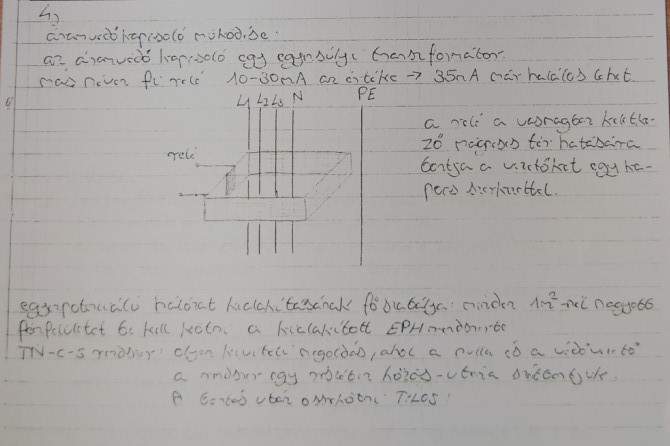 4,
áramvédőkapcsoló működése:
az áramvédő kapcsoló egy egyensúlyi transzformátor.
más néven fi relé 10-30mA az értéke → 35mA már halálos lehet.
L1 L2 L3 N PE
relé
a relé a vasmagban keletke-
ző mágneses tér hatására
bontja a vezetőket egy ka-
pocs szerkezettel.
egyenpotenciálú hálózat kialakításának fő szabálya: minden 1m²-nél nagyobb
fémfelületet be kell kötni a kialakított EPH rendszerbe
TN-C-S rendszer: olyan kivitelű megoldás, ahol a nulla és a védővezető
a rendszer egy részében közös - utána szétbontjuk.
A bontás után összekötni TILOS!